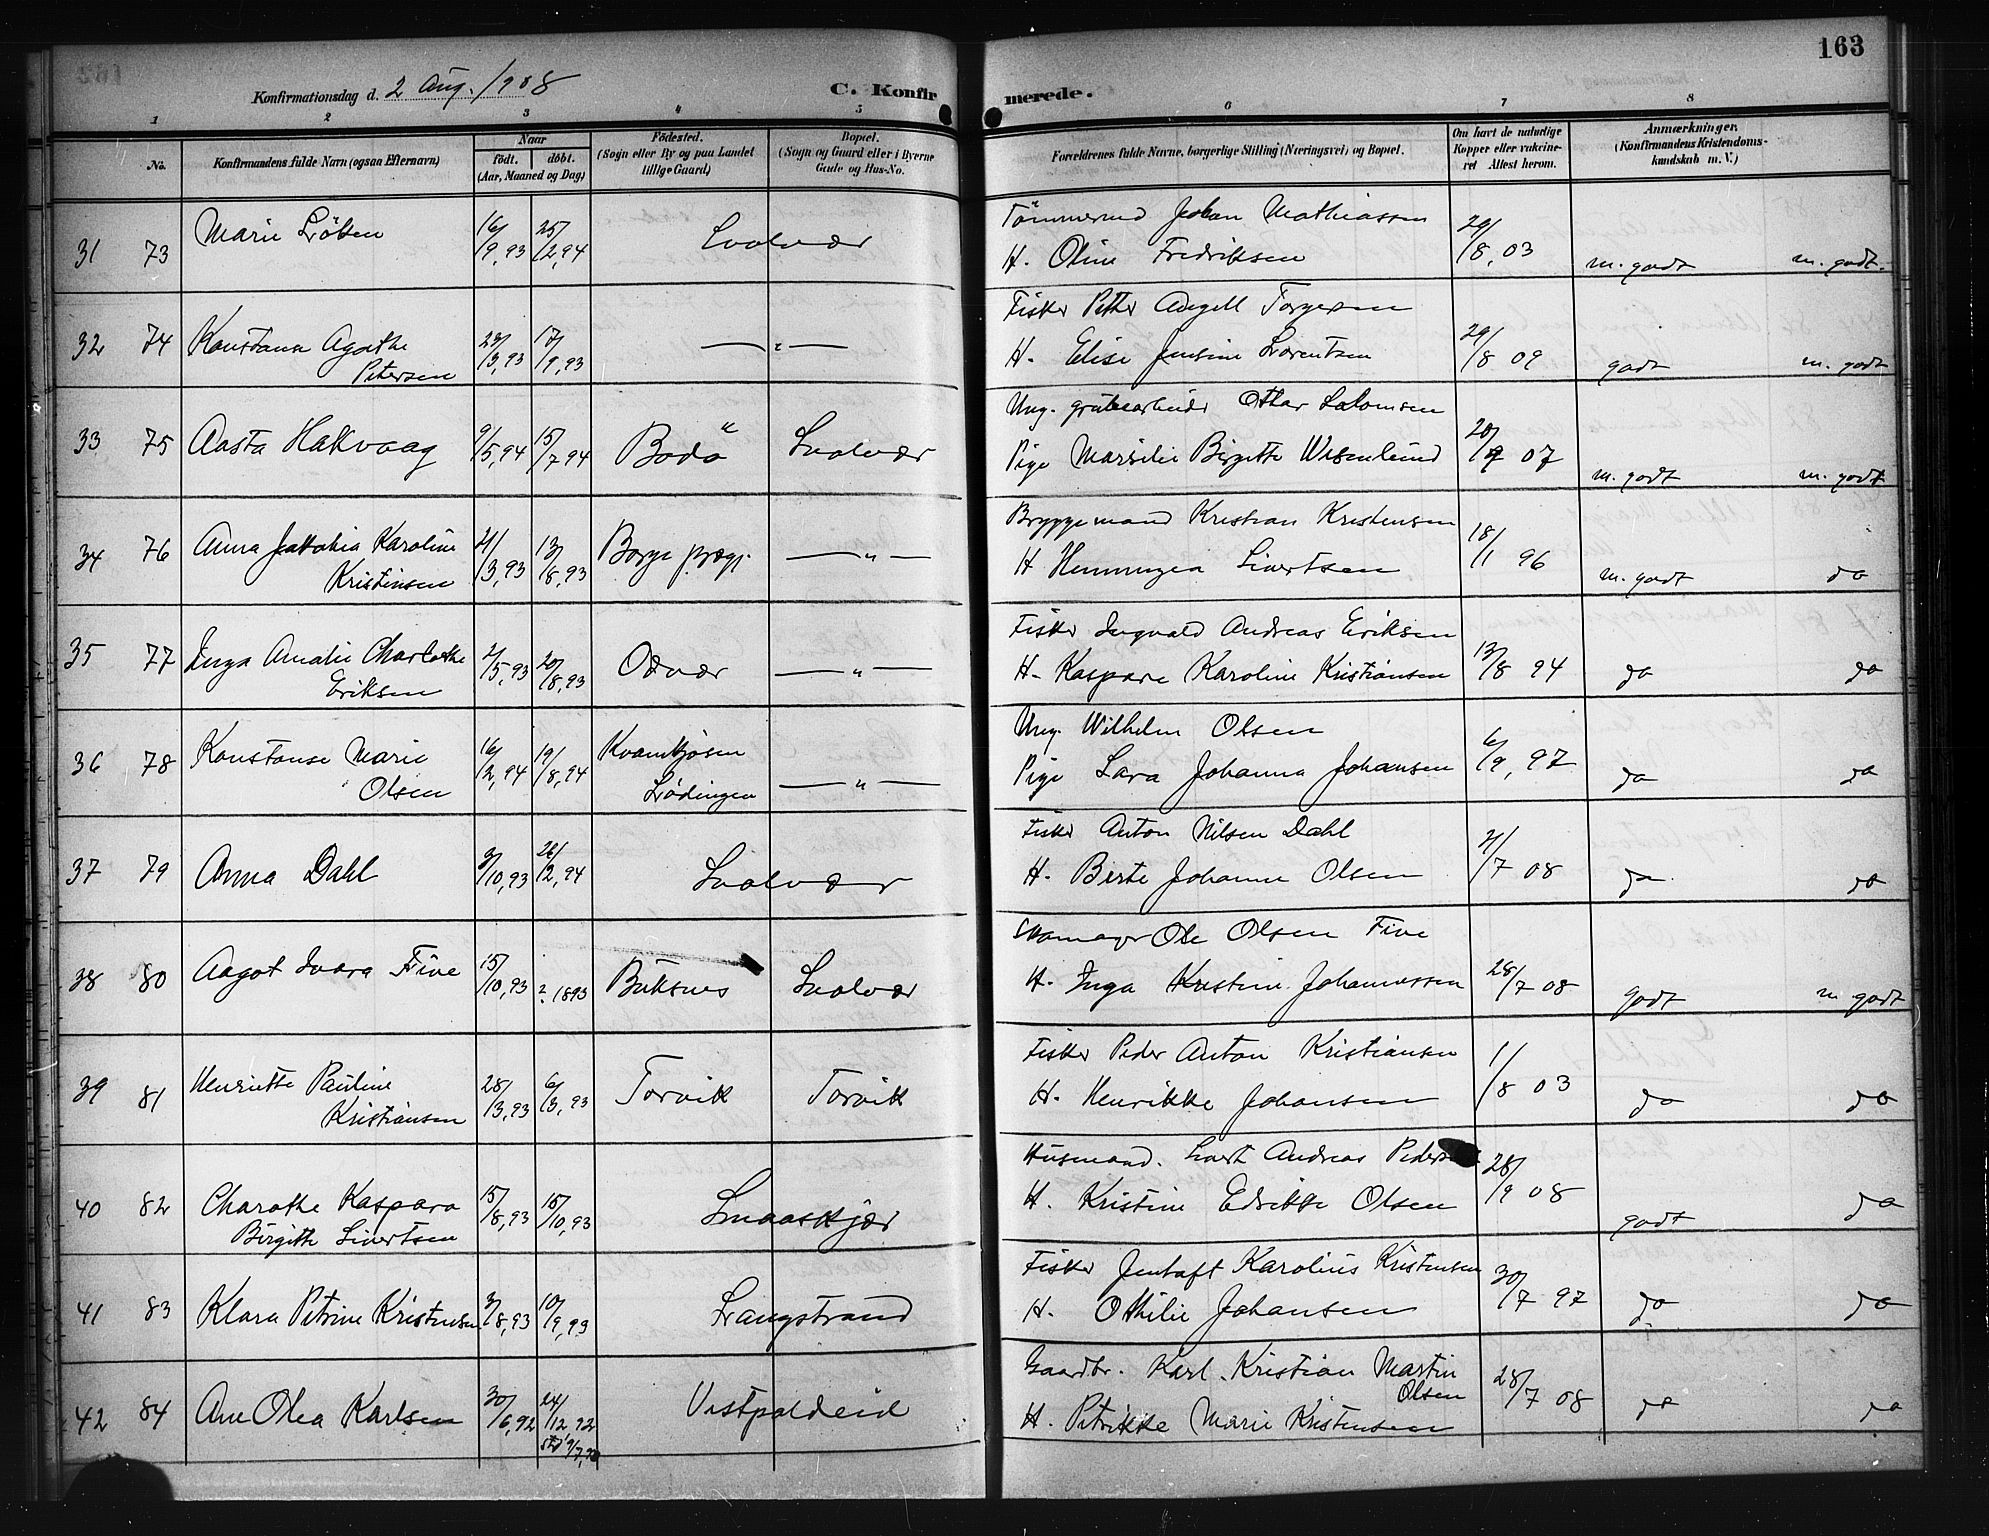 163
Konfirmationsdag d. 2 Aug. 1908
C. Konfirmerede.
1 2 3 4 5 6 7 8
No.
Konfirmandens fulde Navn (ogsaa Efternavn)
Naar
født. døbt.
(Aar, Maaned og Dag)
Fødested.
(Sogn eller By og paa Landet
tillige Gaard)
Bopæl.
(Sogn og Gaard eller i Byerne
Gade og Hus-No.
Forældrenes fulde Navne, borgerlige Stilling (Næringsvei) og Bopæl.
Om havt de naturlige
Kopper eller vaccine-
ret Attest herom.
Anmærkninger.
(Konfirmandens Kristendoms-
kundskab m. V.)
31 73 Marie Løben 16/9, 93 25/2, 94 Svolvær
Tømmermd Johan Mathiassen
H. Oline Fredriksen 29/8, 03 m. godt m. godt.
32 74 Konstanse Agathe
Petersen 23/3, 93 17/9, 93 — " —
Fisker Petter Angell Torgersen
H. Elise Jensine Lorentsen 29/8 09 godt m. godt
33 75 Aasta Hakvaag 9/5, 94 15/7 94 Bodø Svolvær
Ung. grubearbeider Othar Salomsen
Pige Marsilie Birgitte Wesenlund 20/9 07 m. godt m. godt
34 76 Anna Jakobia Karoline
Kristensen 21/3, 93 13/8, 93 Borge prægj. — " —
Bryggemand Kristian Kristensen
H Henningea Sivertsen 18/1 96 m. godt do
35 77 Inga Amalie Charlothe
Eriksen 2/5, 93 20/8, 93 Odvær — " —
Fisker Ingvald Andreas Eriksen
H. Kaspare Karoline Kristiansen 13/8 94 do do
36 78 Konstanse Marie
Olsen 16/2, 94 19/8, 94 Kvannkjosen
Lødingen — " —
Ung. Wilhelm Olsen
Pige Lava Johanna Johansen 6/9, 97 do do
37 79 Anna Dahl 3/10, 93 26/2, 94 Svolvær
Fisker Anton Nilsen Dahl
H. Berte Johanne Olsen 21/7 08 do do
38 80 Aagot Ivara Five 15/10, 93 ? 1893 Buksnes Svolvær
Skomager Ole Olsen Five
H. Inga Kristine Johannessen 28/7 08 godt m godt
39 81 Henriette Pauline
Kristiansen 28/3, 93 6/3, 93 Torvik Torvik
Fisker Peder Anton Kristiansen
H. Henrikke Johansen 1/8 03 do do
40 82 Charothe Kaspara
Birgitte Sivertsen 15/8, 93 15/10, 93 Smaaskjær
Husmand. Sivert Andreas Pedersen
H. Kristine Edrikke Olsen 28/9 08 godt do
41 83 Klara Petrine Kristensen 3/8, 93 10/9, 93 Langstrand
Fisker Jentoft Karolius Kristensen
H. Othilie Johansen 30/7 97 do do
42 84 Ane Olea Karlsen 30/6, 92 24/12, 92 Vestpoldeid
Gaardbr. Karl Kristian Martin
Olsen
H. Petrikke Marie Kristensen 28/7 08 do do